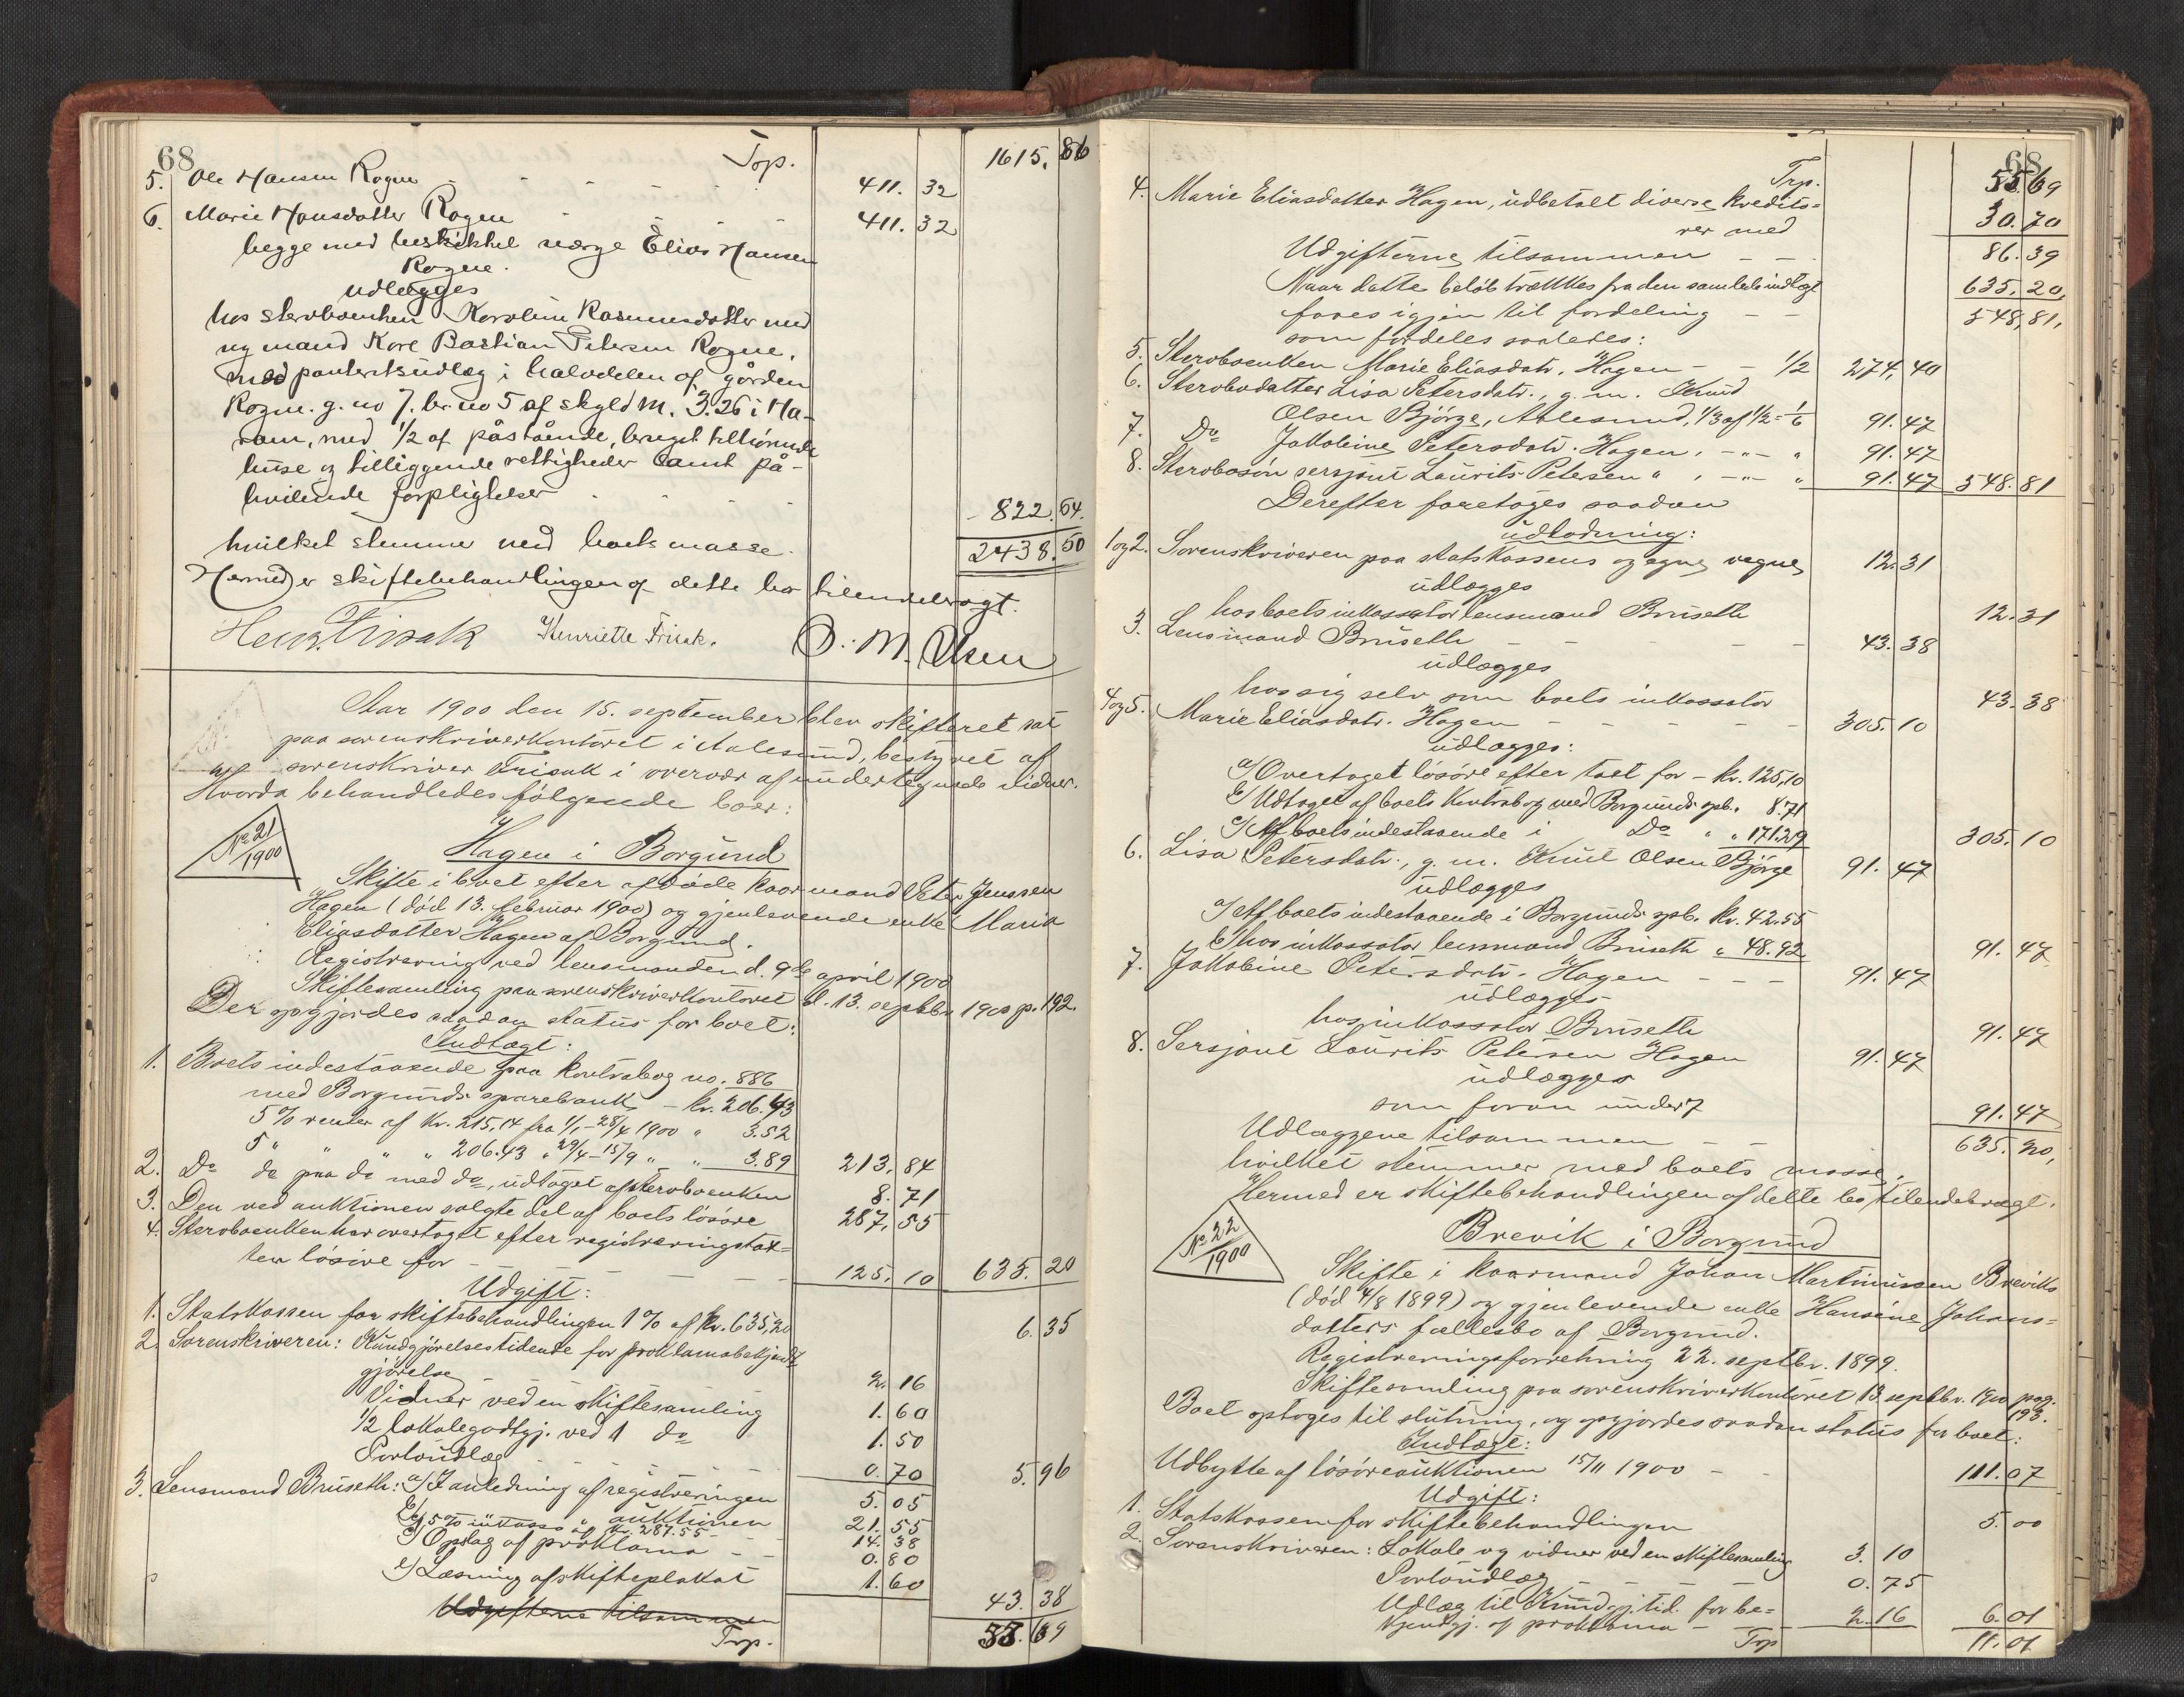 68
Trp. 1615. 86
5. Ole Hansen Rogne - - - - - 411. 32
6. Marie Hansdatter Rogne - - - - 411. 32
begge med beskikket værge Elias Hansen
Rogne.
udlægges
hos sterboenken Karoline Rasmusdatter med
ny mand Kore Bastian Petersen Rogne,
med panteretsudlæg i halvdelen af gården
Rogne. g. no 7. br. no 5 af skyld M. 3.26 i Ha-
ram, med 1/2 af påstående, bruget tilhörende
huse og tilliggende rettigheder samt på-
hvilende forpligtelser - - - - 822. 64.
hvilket stemmer med boets masse. 2438. 50
Hermed er skiftebehandlingen af dette bo tilendebragt.
Henr. Frisak Henriette Frisak. O. M. Olsen
Aar 1900 den 15. september blev skifteret sat
paa sorenskriverkontoret i Aalesund, bestyret af
sorenskriver Frisak i overvær af undertegnede vidner.
Hvorda behandledes følgende boer:
No 21
1900
Hagen i Borgund
Skifte i boet efter afdøde kaarmand Peter Jenssen
Hagen (død 13. februar 1900) og gjenlevende enke Maria
Eliasdatter Hagen af Borgund.
Registrering ved lensmanden d. 9de april 1900
Skiftesamling paa sorenskriverkontoret d. 13. septbr. 1900 p. 192.
Der opgjordes saadan status for boet:
Indtægt:
1. Boets indestaaende paa kontrabog no. 886
med Borgunds sparebank - kr. 206.43
5 % renter af kr. 215,14 fra 1/1 - 28/4 1900 " 3.52
5 " " " " 206.43 " 29/4 - 15/9 " " 3.89 213. 84
2. Do do paa do med do, udtaget af sterboenken 8. 71
3. Den ved auktionen solgte del af boets lösöre 287. 55
4. Sterboenken har overtaget efter registreringstax=
ten lösöre for - - - - - 125. 10 635. 20
Udgift:
1. Statskassen for skiftebehandlingen 1 % af kr. 635,20 6. 35
2. Sorenskriveren: Kundgjörelsestidende for proklamabekjendt=
gjörelse 2. 16
Vidner ved en skiftesamling 1. 60
1/2 lokalegodtgj. ved 1 do 1. 50
Portoudlæg - - - - 0. 70 5. 96
3. Lensmand Bruseth: a/ I anledning af registreringen 5. 05
b/ " " auktionen 21. 55
c/ 5 % inkasso af kr. 287.55 - 14. 38
d/ Opslag af proklama - - 0. 80
e/ Læsning af skifteplakat 1. 60 43. 38
Udgifterne tilsammen
Trp. 55. 69
68
Trp. 55. 69
4. Marie Eliasdatter Hagen, udbetalt diverse kredito=
rer med 30. 70
Udgifterne tilsammen - - 86. 39
Naar dette beløb trækkes fra den samlede indtægt 635. 20,
faaes igjen til fordeling - - 548, 81,
som fordeles saaledes:
5. Sterboenken Marie Eliasdatr. Hagen - - 1/2 274. 40
6. Sterbodatter Lisa Petersdatr., g. m. Knud
Olsen Bjørge, Aalesund, 1/3 af 1/2 = 1/6 91. 47
7. Do Jakobine Petersdatr. Hagen, - " - " 91. 47
8. Sterbosön sersjant Laurits Petersen " , - " - " 91. 47 548. 81
Derefter foretoges saadan
udlodning:
1 og 2. Sorenskriveren paa statskassens og egne vegne 12. 31
udlægges
hos boets inkassator lensmand Bruseth 12. 31
3. Lensmand Bruseth - - - - 43. 38
udlægges
hos sig selv som boets inkassator 43. 38
4 og 5. Marie Eliasdatr. Hagen - - - - - 305. 10
udlægges:
a/ Overtaget lösöre efter taxt for - kr. 125,10
b/ Udtaget af boets kontrabog med Borgunds spb. 8.71
c/ Af boets indestaaende i Do " " 171.29 305. 10
6. Lisa Petersdatr., g. m. Knut Olsen Bjørge 91. 47
udlægges
a/ Af boets indestaaende i Borgunds spb. kr. 42.55
b/ hos inkassator lensmand Bruseth " 48.92 91. 47
7. Jakobine Petersdatr. Hagen - - - 91. 47
udlægges
hos inkassator Bruseth 91. 47
8. Sersjant Laurits Petersen Hagen 91. 47
udlægges
som foran under 7 91. 47
Udlæggene tilsammen - - 635. 20,
hvilket stemmer med boets masse.
Hermed er skiftebehandlingen af dette bo tilendebragt.
No 22
1900
Brevik i Borgund
Skifte i kaarmand Johan Martinussen Breviks
(død 4/8 1899) og gjenlevende enke Hansine Johans=
datters fællesbo af Borgund.
Registreringsforretning 22. septbr. 1899.
Skiftesamling paa sorenskriverkontoret 13 septbr. 1900 pag.
193.
Boet optoges til slutning, og opgjordes saadan status for boet:
Indtægt:
Udbytte af lösöreauktionen 15/11 1900 - - 111. 07
Udgift:
1. Statskassen for skiftebehandlingen 5. 00
2. Sorenskriveren: Lokale og vidner ved en skiftesamling 3. 10
Portoudlæg - - - 0. 75
Udlæg til Kundgj. tid. for be=
kjendtgj. af proklama - 2. 16 6. 01
Trp 11. 01